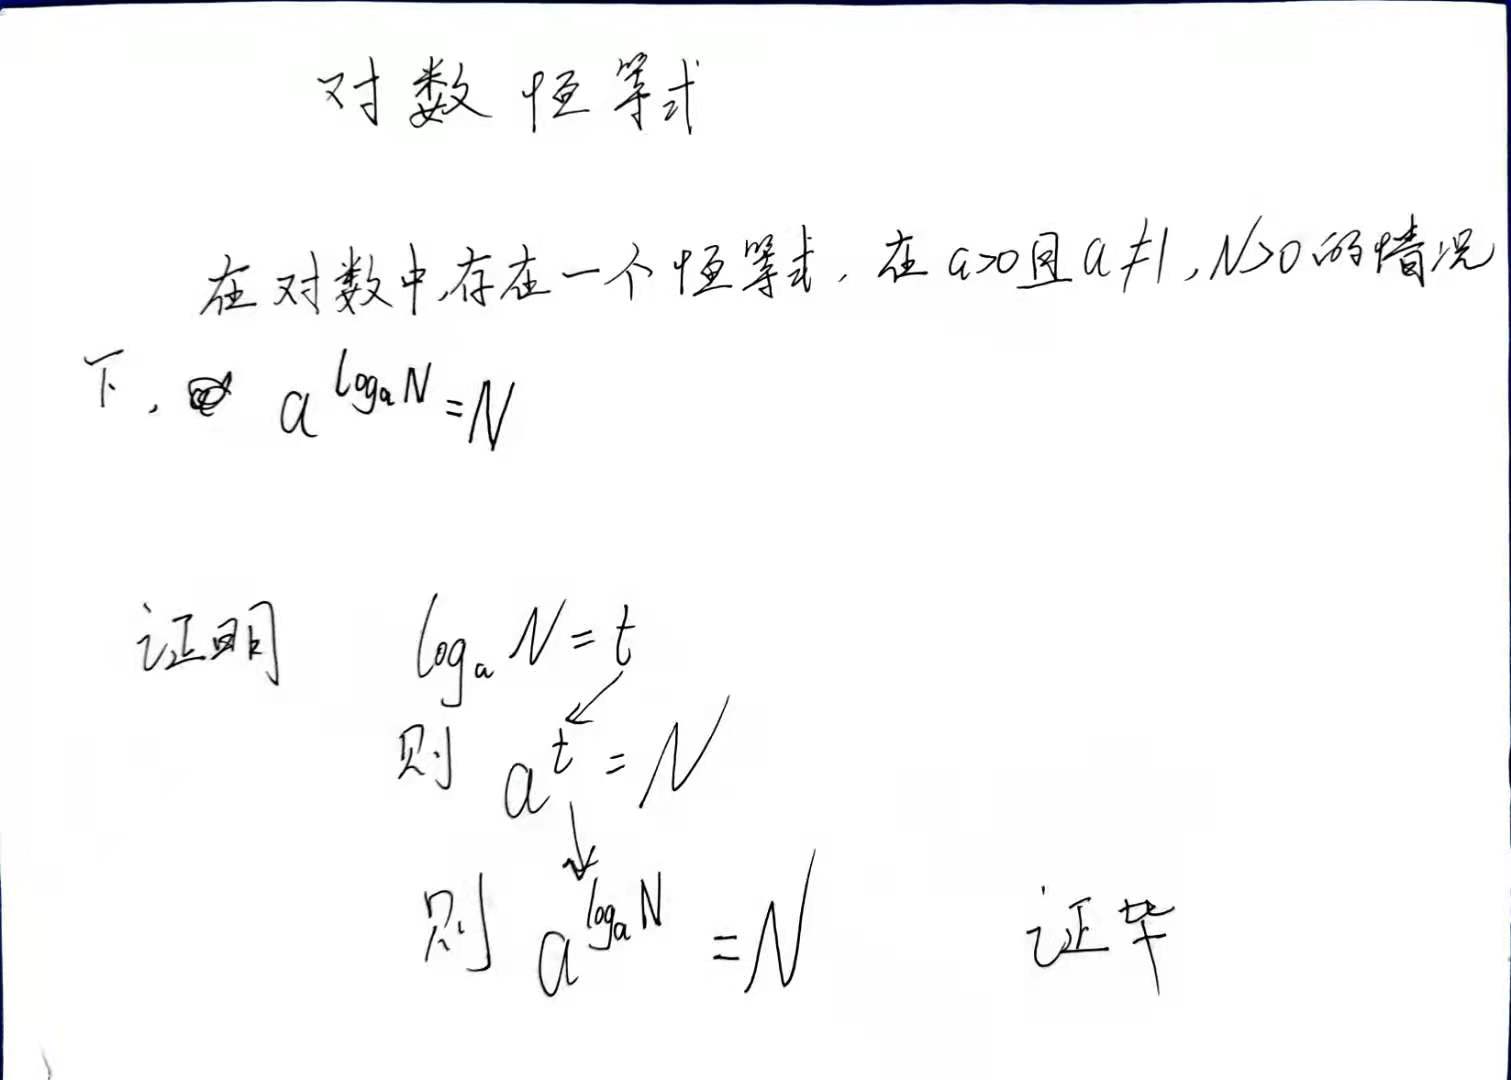 对数恒等式
在对数中,存在一个恒等式,在a>0且a≠1,N>0的情况
下, a^{log_a N}=N
证明 log_a N=t
则 a^t=N
则 a^{log_a N}=N 证毕